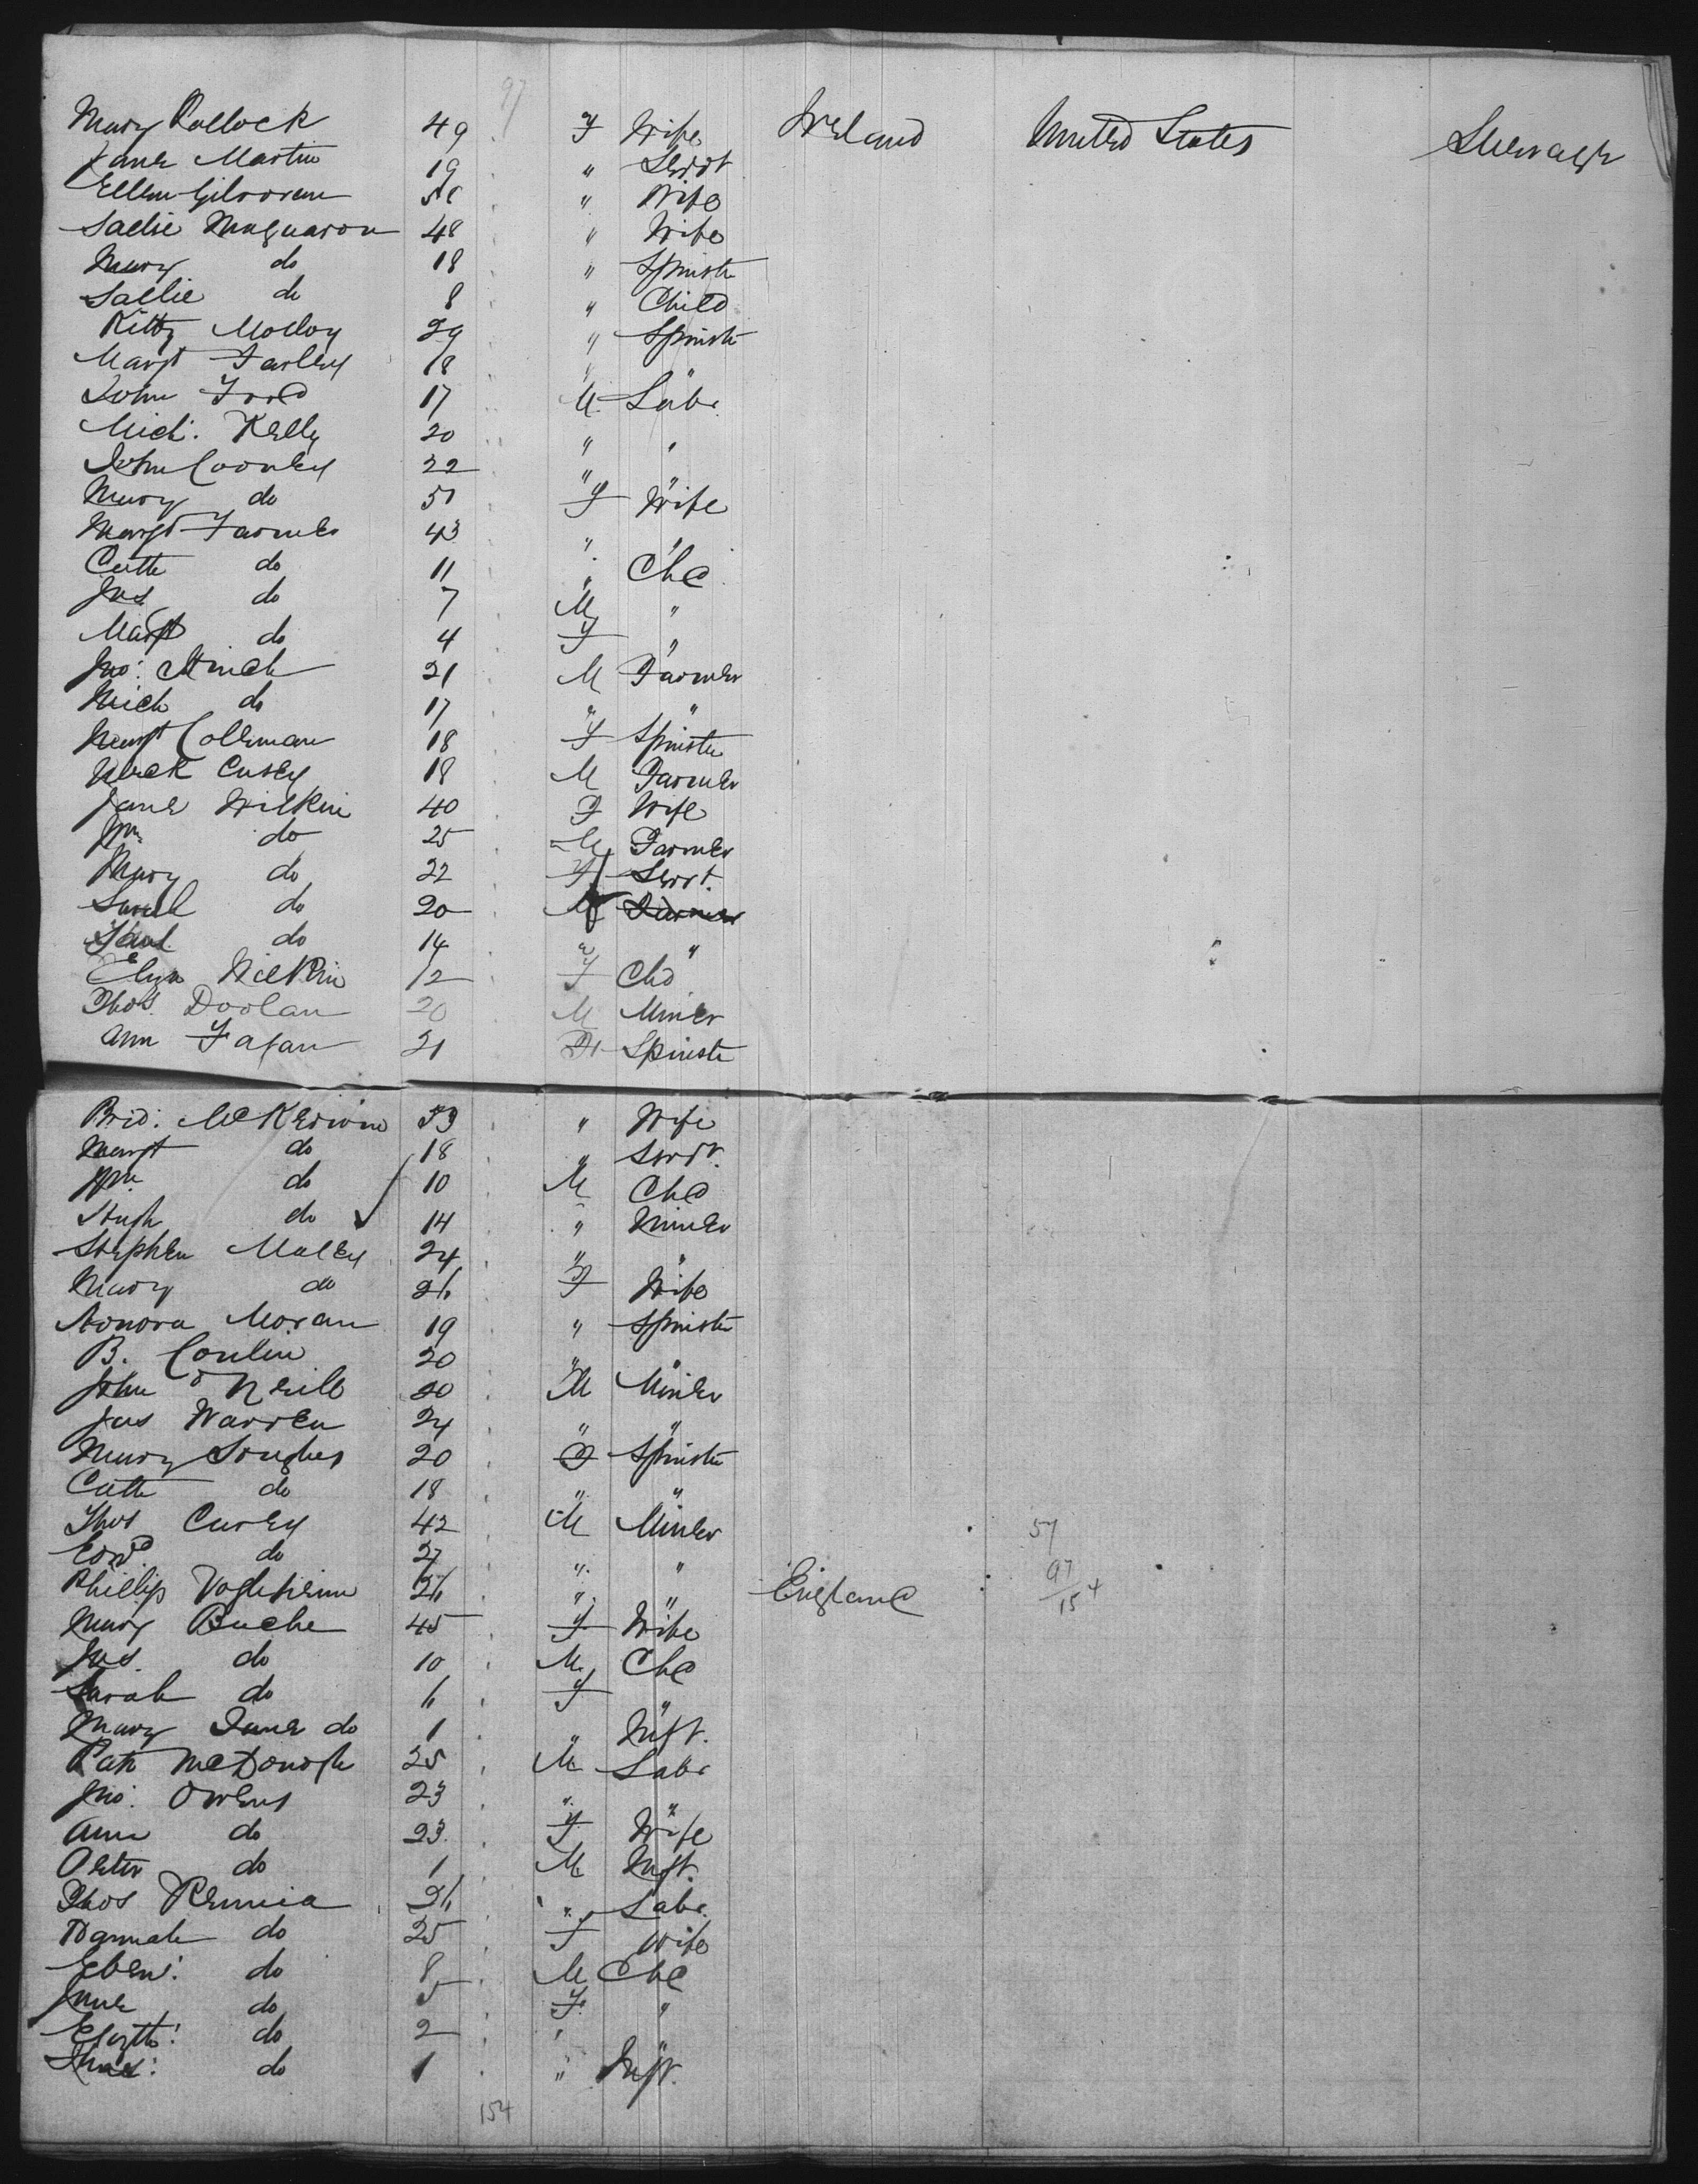 97
Mary Pollock 49 F Wife Ireland United States Steerage
Jane Martin 19 " Servt
Ellen Gilooren 50 " Wife
Sallie 48 " Wife
Mary do 18 " Spinstr
Sallie do 8 " Child
Kitty Molloy 29 " Spinstr
Margt Farley 18 " "
John Ford 17 M Labr
Mich. Kelly 20 " "
John Cooney 22 " "
Mary do 51 F Wife
Margt Farmer 43 " "
Cath do 11 " Chd
Jas do 7 M "
Margt do 4 F "
Jno: 21 M Farmer
Mich do 17 " "
Margt Colleman 18 F Spinster
Casey 18 M Farmer
Jane Wilkin 40 F Wife
Wm do 25 M Farmer
Mary do 22 F Servt.
Saml do 20 M Farmer
do 14 " "
Eliza Wilkin 12 F Chd
Thos. Doolan 20 M Miner
Ann Fagan 21 F Spinstr
Brid: McKerwin 53 " Wife
Margt do 18 " Servt.
Wm do 10 M Chd
Hugh do 14 " Miner
Stephen Malley 24 " "
Mary do 26 F Wife
Honora Moran 19 " Spinstr
B. Conlin 20 " "
John O'Neill 20 M Miner
Jas Warren 24 " "
Mary 20 F Spinstr
Cath do 18 " "
Thos Curley 42 M Miner 57
Edwd do 27 " " 97
Phillip 26 " " England 154
Mary Buche 45 F Wife
Jas. do 10 M Chd
Sarah do 6 F "
Mary Jane do 1 " Inft.
Patk McDonogh 25 M Labr
Jno. Owens 23 " "
Ann do 23 F Wife
Peter do 1 M Inft.
Thos Rennia 26 " Labr.
Hannah do 25 F Wife
Eben: do 8 M Chd
Jane do 5 F "
do 2 " "
do 1 " Inft.
154